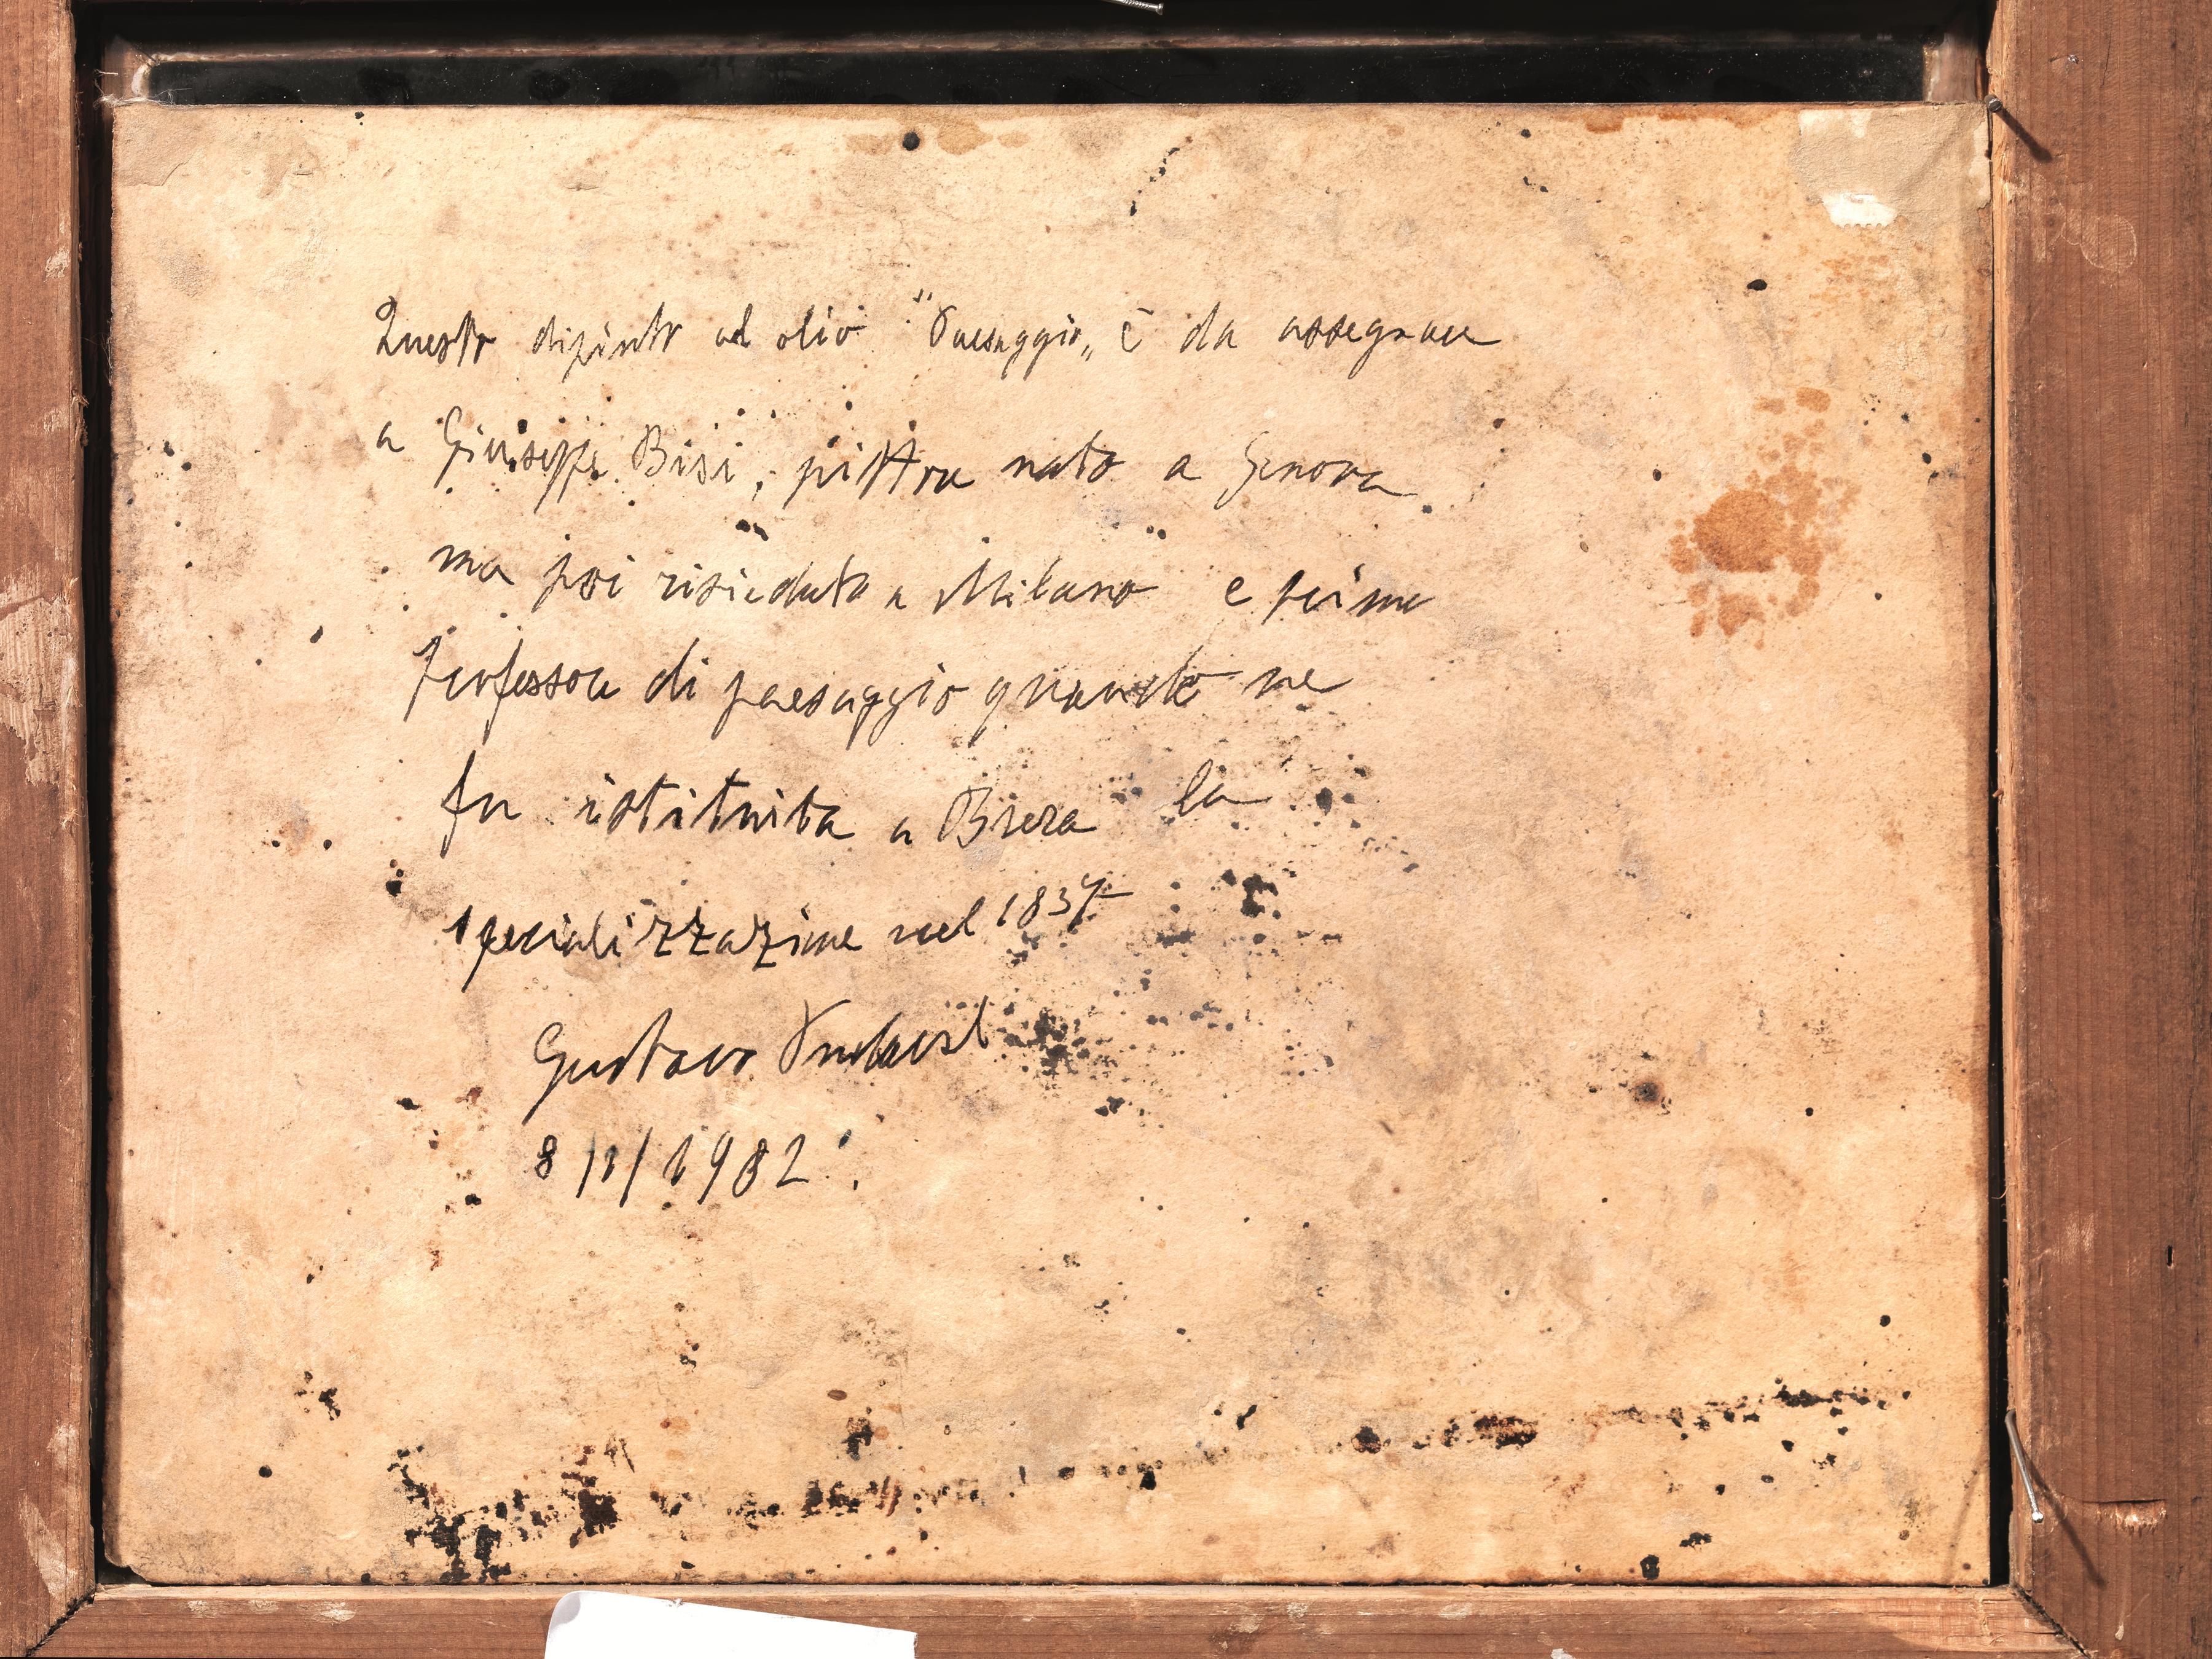 Questo dipinto ad olio "Paesaggio„ è da assegnare
a Giuseppe Bisi, pittore nato a Genova
ma poi risieduto a Milano e primo
professore di paesaggio quando ne
fu istituita a Brera la
specializzazione nel 1837
Gustavo Predaval
8/1/1982.